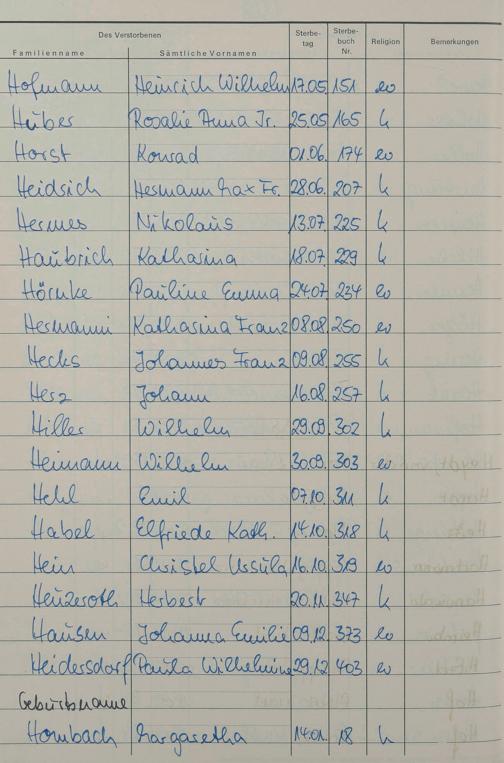 Des Verstorbenen Sterbe- Sterbe-
Familienname Sämtliche Vornamen tag buch Nr. Religion Bemerkungen
Hofmann Heinrich Wilhelm 17.05 151 ev
Huber Rosalie Anna Fr. 25.05 165 k
Horst Konrad 01.06. 174 ev
Heidrich Hermann Max Fr. 28.06. 207 k
Hermes Nikolaus 13.07. 225 k
Haubrich Katharina 18.07. 229 k
Hörnke Pauline Emma 24.07 234 ev
Hermanni Katharina Franz 08.08. 250 ev
Hecks Johannes Franz 09.08. 255 k
Herz Johann 16.08. 257 k
Hiller Wilhelm 29.09. 302 k
Heimann Wilhelm 30.09. 303 ev
Hehl Emil 07.10. 311 k
Habel Elfriede Kath. 14.10. 318 k
Hein Christel Ursula 16.10. 319 ev
Heuzeroth Herbert 20.11. 347 k
Hausen Johanna Emilie 09.12 373 ev
Heidersdorf Paula Wilhelmine 29.12 403 ev
Geburtsname
Hombach Margaretha 14.01. 18 k